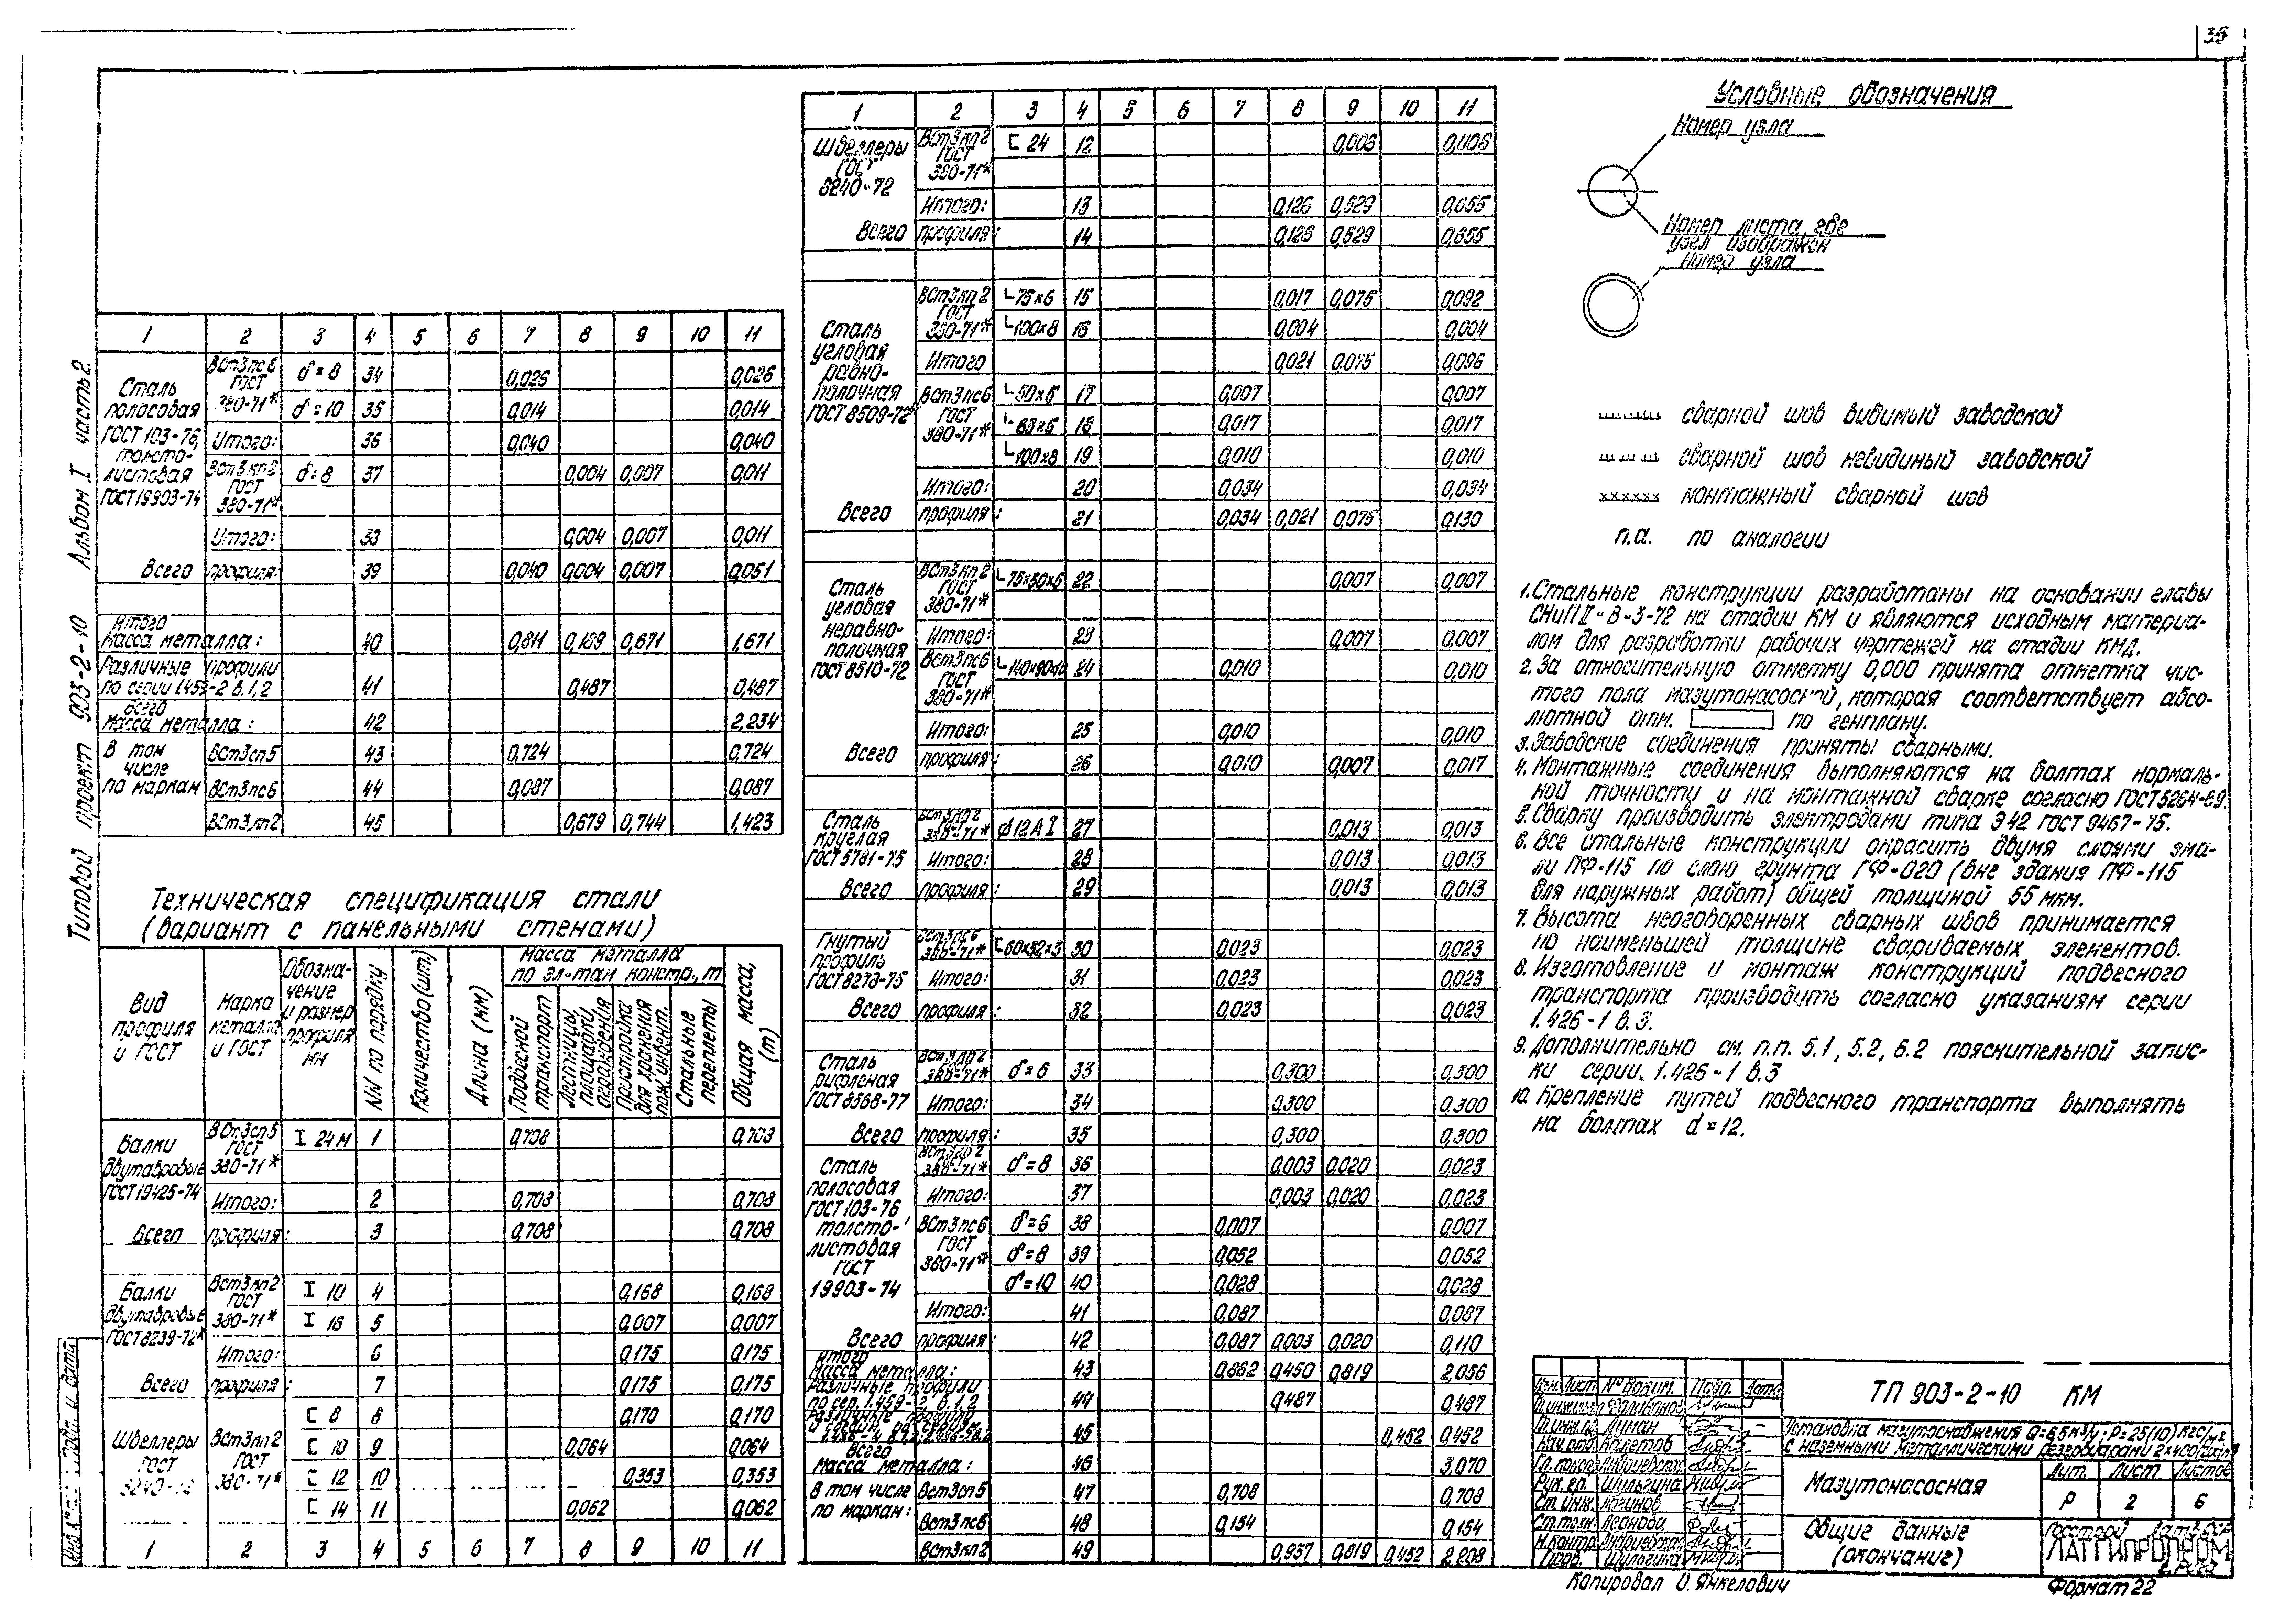 35
Типовой проект 903-2-10 Альбом I часть 2.
1 2 3 4 5 6 7 8 9 10 11
Сталь полосовая ГОСТ 103-76, толсто-листовая ГОСТ 19903-74
ВСт3пс6 ГОСТ 380-71* δ=8 34 0,026 0,026
δ=10 35 0,014 0,014
Итого: 36 0,040 0,040
ВСт3кп2 ГОСТ 380-71* δ=8 37 0,004 0,007 0,011
Итого: 38 0,004 0,007 0,011
Всего профиля: 39 0,040 0,004 0,007 0,051
Итого масса металла: 40 0,811 0,189 0,671 1,671
Различные профили по серии 1.459-2 в.1,2 41 0,487 0,487
Всего масса металла: 42 2,234
В том числе по маркам ВСт3сп5 43 0,724 0,724
ВСт3пс6 44 0,087 0,087
ВСт3кп2 45 0,679 0,744 1,423
Техническая спецификация стали
(вариант с панельными стенами)
Вид профиля и ГОСТ
Марка металла и ГОСТ
Обозначение и размер профиля мм
NN по порядку
Количество (шт)
Длина (мм)
Масса металла по эл-там констр., т
Подвесной транспорт
Лестницы, площадки, ограждения
Пристройка для хранения пож. инвент.
Стальные переплеты
Общая масса, (т)
Балки двутавровые ГОСТ 19425-74 ВСт3сп5 ГОСТ 380-71* I 24М 1 0,708 0,708
Итого: 2 0,708 0,708
Всего профиля: 3 0,708 0,708
Балки двутавровые ГОСТ 8239-72* ВСт3кп2 ГОСТ 380-71* I 10 4 0,168 0,168
I 16 5 0,007 0,007
Итого: 6 0,175 0,175
Всего профиля: 7 0,175 0,175
Швеллеры ГОСТ 8240-72 ВСт3кп2 ГОСТ 380-71* [ 8 8 0,170 0,170
[ 10 9 0,064 0,064
[ 12 10 0,353 0,353
[ 14 11 0,062 0,062
1 2 3 4 5 6 7 8 9 10 11
1 2 3 4 5 6 7 8 9 10 11
Швеллеры ГОСТ 8240-72 ВСт3кп2 ГОСТ 380-71* [ 24 12 0,006 0,006
Итого: 13 0,126 0,529 0,655
Всего профиля: 14 0,126 0,529 0,655
Сталь угловая равно-полочная ГОСТ 8509-72* ВСт3кп2 ГОСТ 380-71* L75x6 15 0,017 0,075 0,092
L100x8 16 0,004 0,004
Итого 0,021 0,075 0,096
ВСт3пс6 ГОСТ 380-71* L50x5 17 0,007 0,007
L63x5 18 0,017 0,017
L100x8 19 0,010 0,010
Итого: 20 0,034 0,034
Всего профиля: 21 0,034 0,021 0,075 0,130
Сталь угловая неравно-полочная ГОСТ 8510-72 ВСт3кп2 ГОСТ 380-71* L75x50x5 22 0,007 0,007
Итого: 23 0,007 0,007
ВСт3пс6 ГОСТ 380-71* L140x90x10 24 0,010 0,010
Итого: 25 0,010 0,010
Всего профиля: 26 0,010 0,007 0,017
Сталь круглая ГОСТ 5781-75 ВСт3кп2 ГОСТ 380-71* ϕ12АI 27 0,013 0,013
Итого: 28 0,013 0,013
Всего профиля: 29 0,013 0,013
Гнутый профиль ГОСТ 8278-75 ВСт3пс6 380-71* [60x32x3 30 0,023 0,023
Итого: 31 0,023 0,023
Всего профиля: 32 0,023 0,023
Сталь рифленая ГОСТ 8568-77 ВСт3кп2 380-71* δ=6 33 0,300 0,300
Итого: 34 0,300 0,300
Всего профиля: 35 0,300 0,300
Сталь полосовая ГОСТ 103-76 толсто-листовая ГОСТ 19903-74 ВСт3кп2 380-71* δ=8 36 0,003 0,020 0,023
Итого: 37 0,003 0,020 0,023
ВСт3пс6 ГОСТ 380-71* δ=6 38 0,007 0,007
δ=8 39 0,052 0,052
δ=10 40 0,028 0,028
Итого: 41 0,087 0,087
Всего профиля: 42 0,087 0,003 0,020 0,110
Итого масса металла: 43 0,862 0,450 0,819 2,056
Различные профили по сер. 1.459-2 в.1.2 44 0,487 0,487
Различные профили 45 0,452 0,452
Всего масса металла: 46 3,070
В том числе по маркам: ВСт3сп5 47 0,708 0,708
ВСт3пс6 48 0,154 0,154
ВСт3кп2 49 0,937 0,819 0,452 2,208
Условные обозначения
Номер узла
Номер листа, где
узел изображен
Номер узла
сварной шов видимый заводской
сварной шов невидимый заводской
монтажный сварной шов
п.а. по аналогии
1. Стальные конструкции разработаны на основании главы
СНиП II-В-3-72 на стадии КМ и являются исходным материа-
лом для разработки рабочих чертежей на стадии КМД.
2. За относительную отметку 0,000 принята отметка чис-
того пола мазутонасосной, которая соответствует абсо-
лютной отм. по генплану.
3. Заводские соединения приняты сварными.
4. Монтажные соединения выполняются на болтах нормаль-
ной точности и на монтажной сварке согласно ГОСТ 5264-69.
5. Сварку производить электродами типа Э42 ГОСТ 9467-75.
6. Все стальные конструкции окрасить двумя слоями эма-
ли ПФ-115 по слою грунта ГФ-020 (вне здания ПФ-115
для наружных работ) общей толщиной 55 мкм.
7. Высота неоговоренных сварных швов принимается
по наименьшей толщине свариваемых элементов.
8. Изготовление и монтаж конструкций подвесного
транспорта производить согласно указаниям серии
1.426-1 в.3.
9. Дополнительно см. п.п. 5.1, 5.2, 6.2 пояснительной запис-
ки серии. 1.426-1 в.3
10. Крепление путей подвесного транспорта выполнять
на болтах d=12.
Изм. Лист № докум. Подп. Дата
Гл. инж. пр. Лункин
Нач. отд. Какетов
Гл. констр. Андриевская
Рук. гр. Шульгина
Ст. инж. Логинов
Ст. техн. Леонова
Н. контр. Андриевская
Пров. Шульгина
ТП 903-2-10 КМ
Установка мазутоснабжения Q=6,5м³/ч; P=25(10) кгс/м²
с наземными металлическими резервуарами
Мазутонасосная
Лит. Лист Листов
Р 2 6
Общие данные
(окончание)
Госстрой
ЛАТГИПРОПРОМ
Копировал О. Янкелович
Формат 22
Подп. и дата